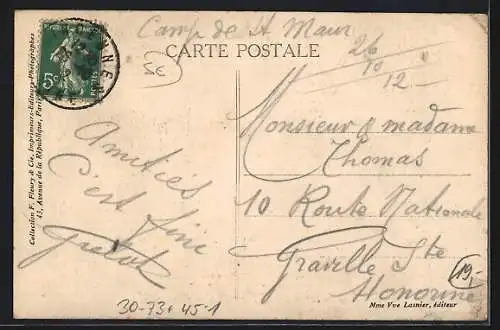 Camp de St Maur
CARTE POSTALE
5c
5€
26
10
12 -
Amitiés
C'est fini
Monsieur & madame
Thomas
10 Route Nationale
Graville Ste
Honorine
19,-
Mme Vve Lasnier, éditeur
30-73+45-1
Collection F. Fleury & Cie, Imprimeurs-Editeurs-Photographes
43, Avenue de la République, Paris